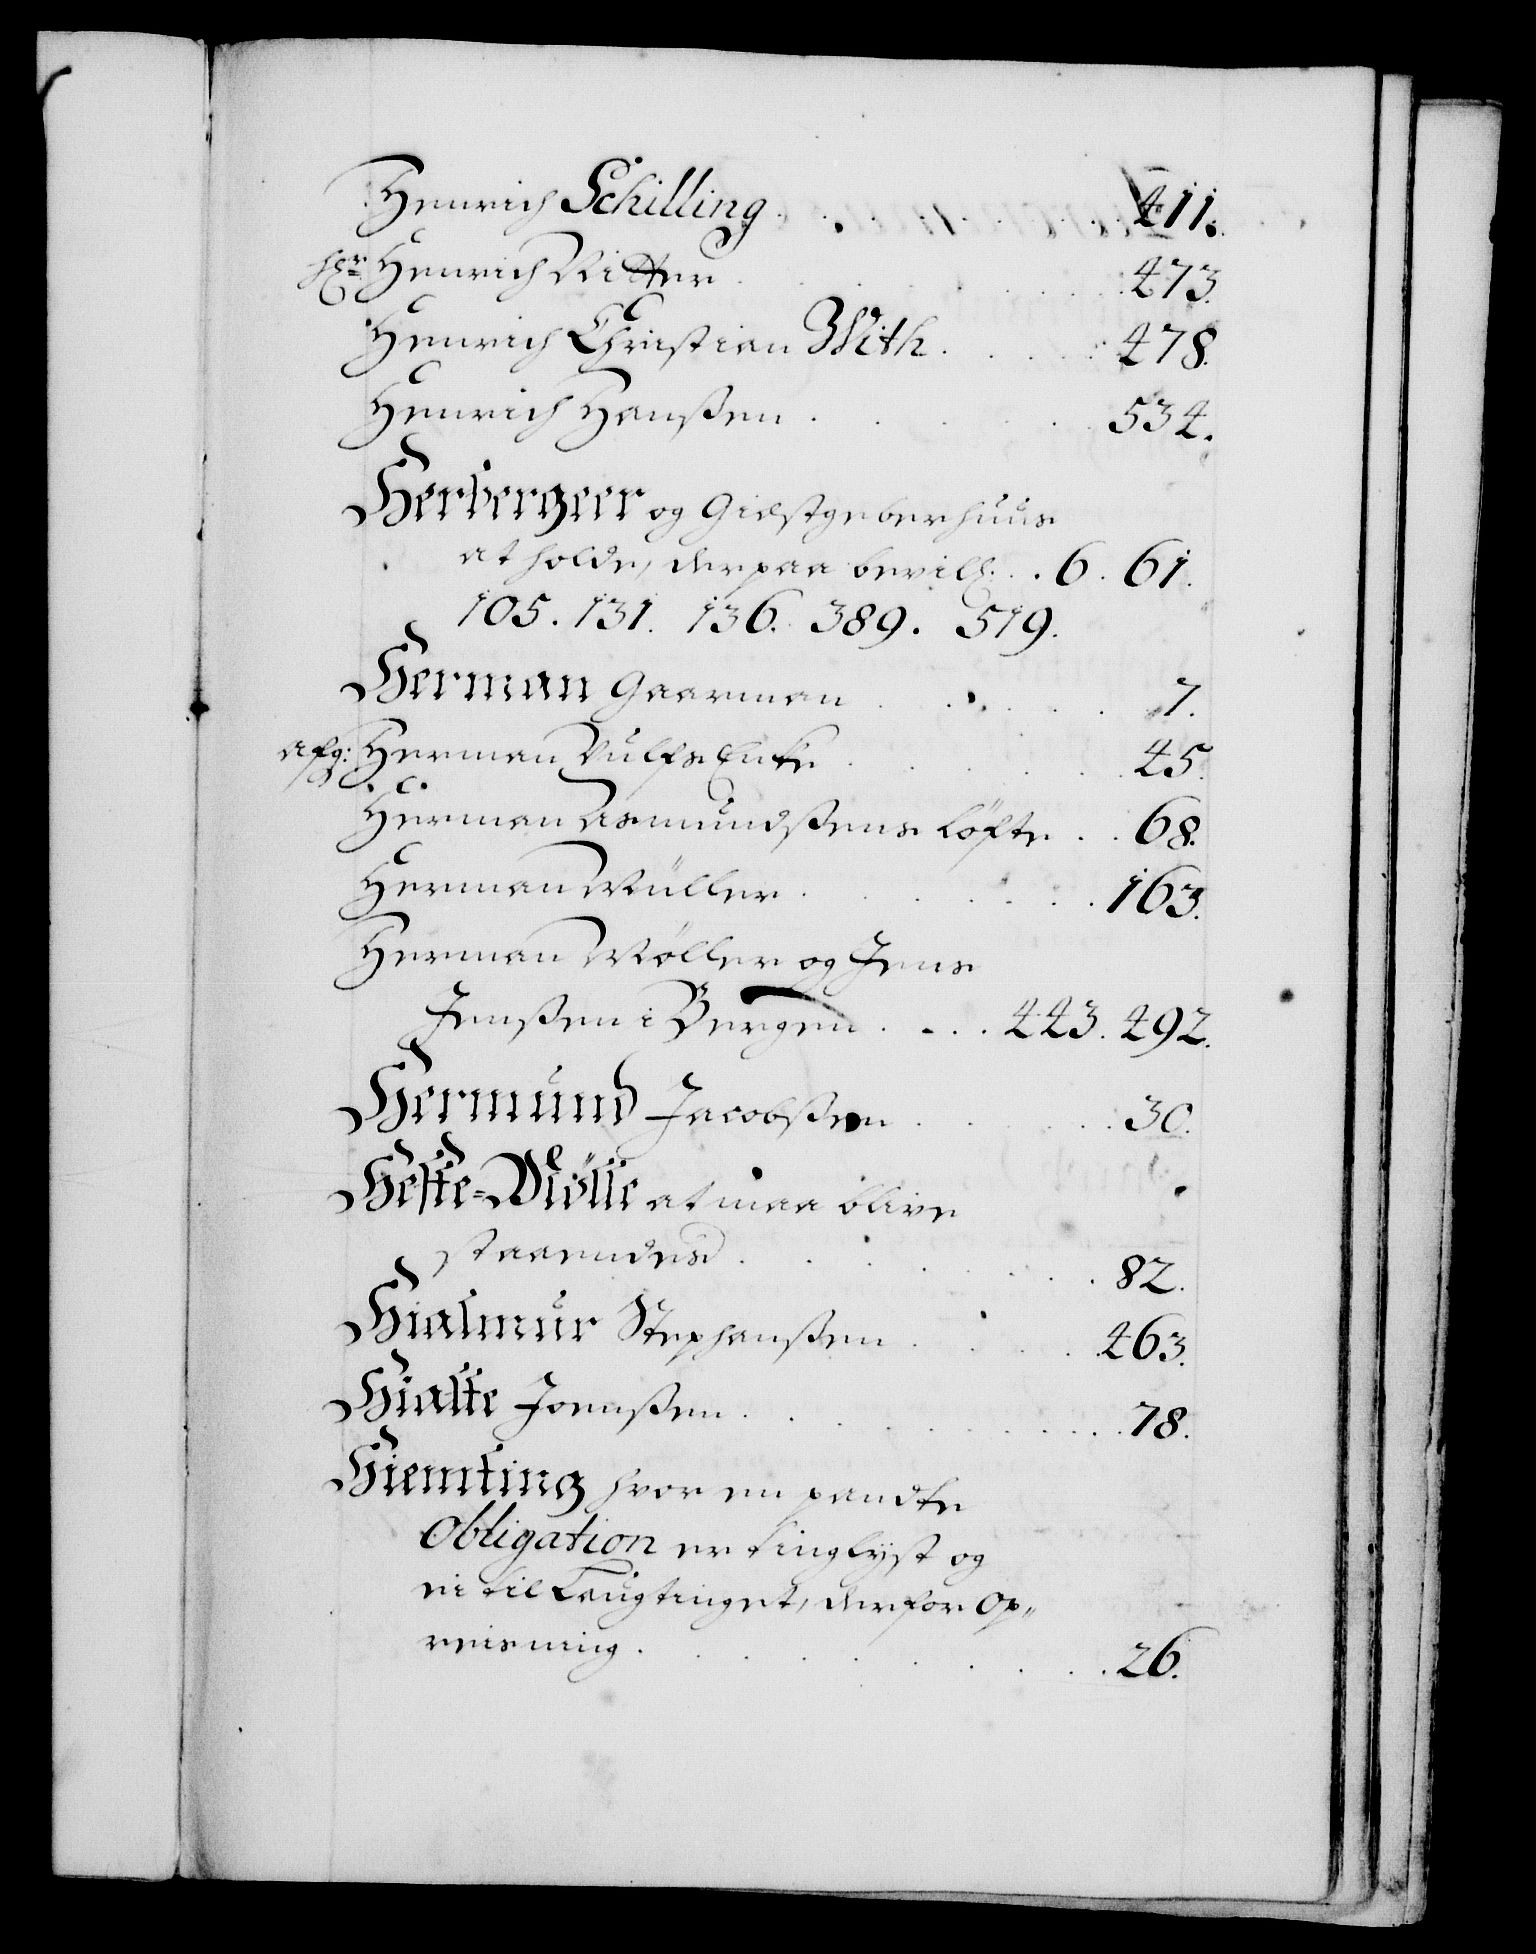 Henrich Schilling . . . . . . 411.
Hr: Henrich Ritter . . . . . . 473.
Henrich Christian With . . . . 478.
Henrich Hanßen . . . . . . 534.
Herbergeer og Giestgeberhuus
at holde, derpaa bevill: . . 6. 61.
105. 131. 136. 389. 519.
Herman Gaarman . . . . . 7.
afg: Herman Wulfs Enke . . . . . . 45.
Herman Asmundßens løfte . . 68.
Herman Müller . . . . . . 163.
Herman Møller og Jens
Jenßen i Bergen . . . . 443. 492.
Hermund Jacobßen . . . . . 30.
Heste-Mølle at maa blive
staaendes . . . . . . . 82.
Hialmur Stephanßen . . . . . 463.
Hialte Jonßen . . . . . . . 78.
Hiemting hvor en pandte
Obligation er tinglyst og
ei til Laugtinget, derfor Op„
reisning . . . . . . . . 26.